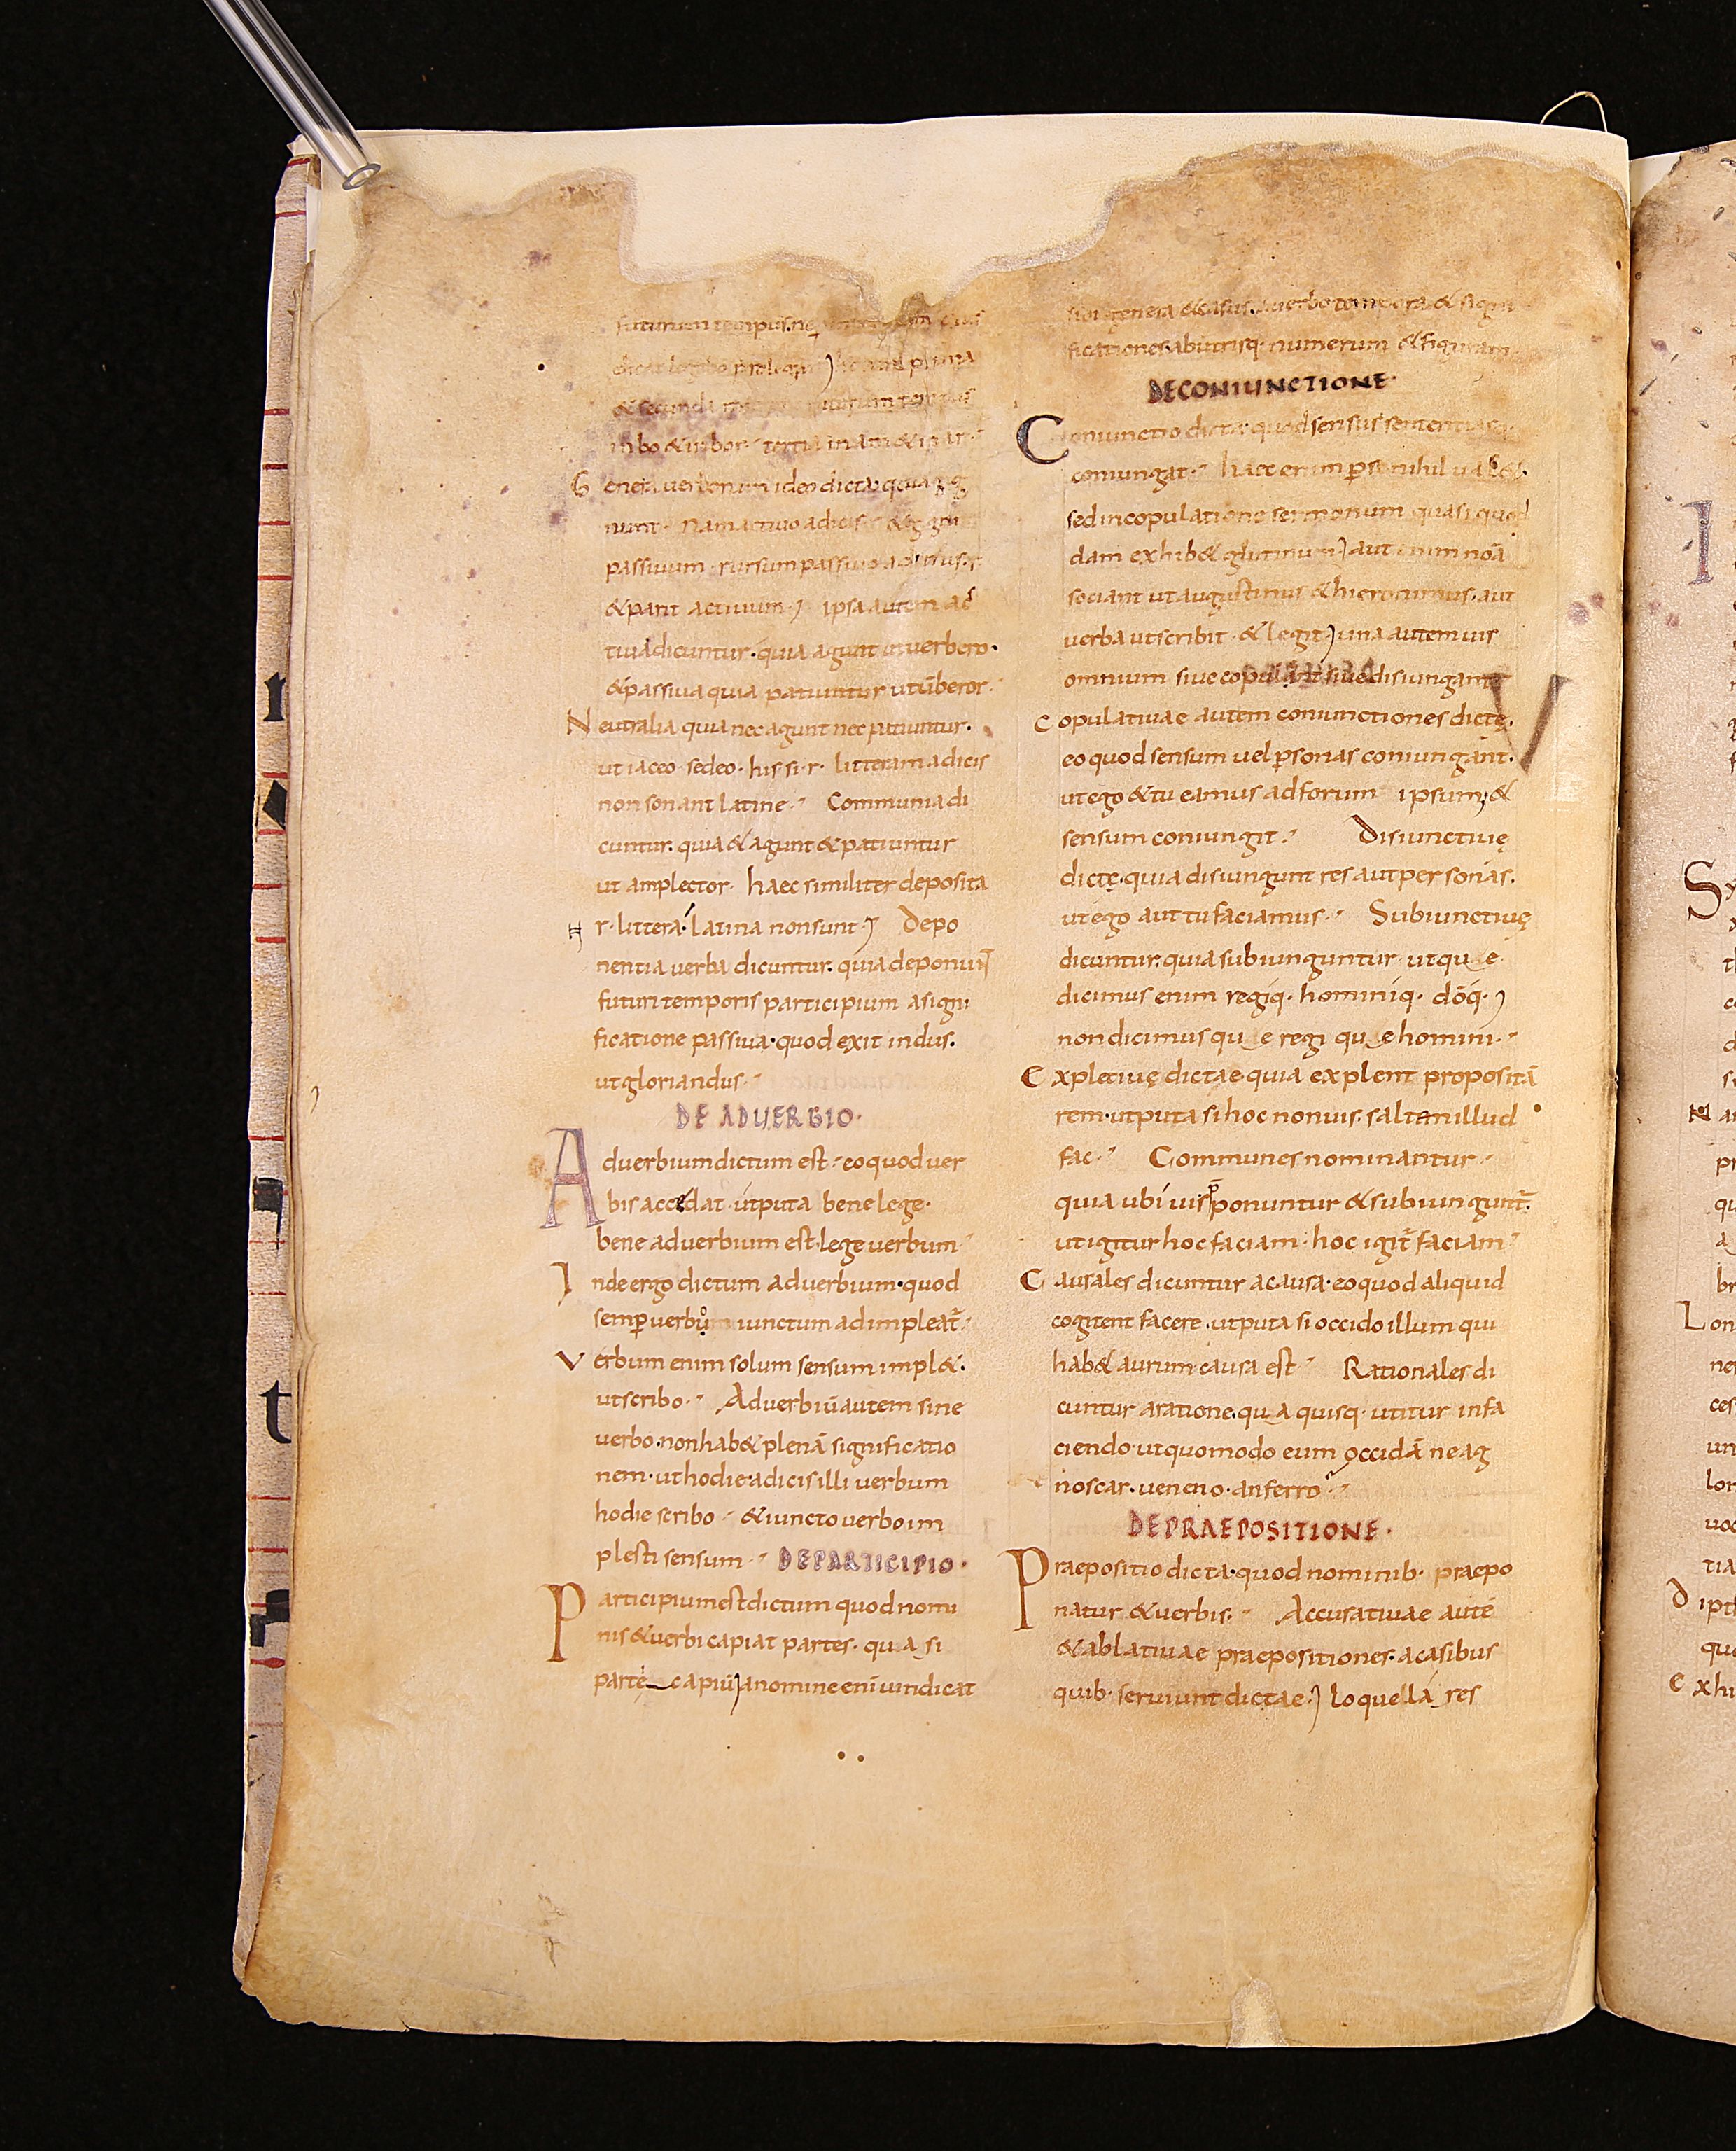 futurum tempus. ne
dicat legebo p̄ro legam
& secunda futurum tempus
in bo & in bor·· tertia in am & in ar··
Genera uerborum ideo dicta. quia gig
nunt· Nam actiuo adicis r & gignit
passiuum· rursum passiuo adimis. r
& parit actiuum·) ipsa autem ac
tiua dicuntur· quia agunt ut uerbero·
& passiua quia patiuntur ut ūberor·
Neutralia quia nec agunt nec patiuntur·
ut iaceo· sedeo· his si· r· litteram adicis
non sonant latine·· Communia di
cuntur· quia & agunt & patiuntur
ut amplector· haec similiter deposita
r· littera· latina non sunt·) Depo
nentia uerba dicuntur· quia deponunt
futuri temporis participium a signi
ficatione passiua· quod exit in dus·
ut gloriandus··
DE ADVERBIO·
Aduerbium dictum est·· eo quod uer
bis accedat· ut puta bene lege·
bene aduerbium est· lege uerbum··
Inde ergo dictum aduerbium· quod
semꝑ uerbo iunctum adimpleat̄··
Verbum enim solum sensum impl&·
ut scribo·· Aduerbiū autem sine
uerbo· non hab& plenā significatio
nem· ut hodie· adicis illi uerbum
hodie scribo·· & iuncto uerbo im
plesti sensum·· DE PARTICIPIO·
Participium est dictum quod nomi
nis & uerbi capiat partes· qua si
partē capiū) a nomine enī uindicat
sibi genera & casus. a uerbo tempora & signi
ficationes. ab utrisq· numerum & figuram·
DE CONIUNCTIONE·
Coniunctio dicta· quod sensus sententiasq·
coniungat·· haec enim ꝑ se nihil ual&·
sed in copulatione sermonum quasi quod
dam exhib& glutinum·) aut enim noā
sociant ut augustinus & hieronimus· aut
uerba ut scribit· & legit·) una autem uis
omnium siue copulant siue disiungant
Copulatiuae autem coniunctiones dictę·
eo quod sensum uel ꝑsonas coniungant·
ut ego & tu eamus ad forum ipsum; &
sensum coniungit·· Disiunctiuę
dictę· quia disiungunt res aut personas·
ut ego aut tu faciamus·· Subiunctiuę
dicuntur· quia subiunguntur ut que·
dicimus enim regiq· hominiq· dōq·)
non dicimus que regi que homini··
Expletiuę dictae· quia explent propositā
rem· ut puta si hoc non uis· saltem illud
fac·· Communes nominantur··
quia ubi uis p̄ponuntur & subiungunt̄·
ut igitur hoc faciam· hoc igit̄ faciam··
Causales dicuntur a causa· eo quod aliquid
cogitent facere· ut puta si occido illum qui
hab& aurum causa est·· Rationales di
cuntur a ratione· qua quisq· utitur in fa
ciendo· ut quomodo eum occidā ne ag
noscar· ueneno· an ferro··
DE PRAEPOSITIONE·
Praepositio dicta· quod nominib· praepo
natur & uerbis·· Accusatiuae autē
& ablatiuae praepositiones· a casibus
quib· seruiunt dictae·) loquella res